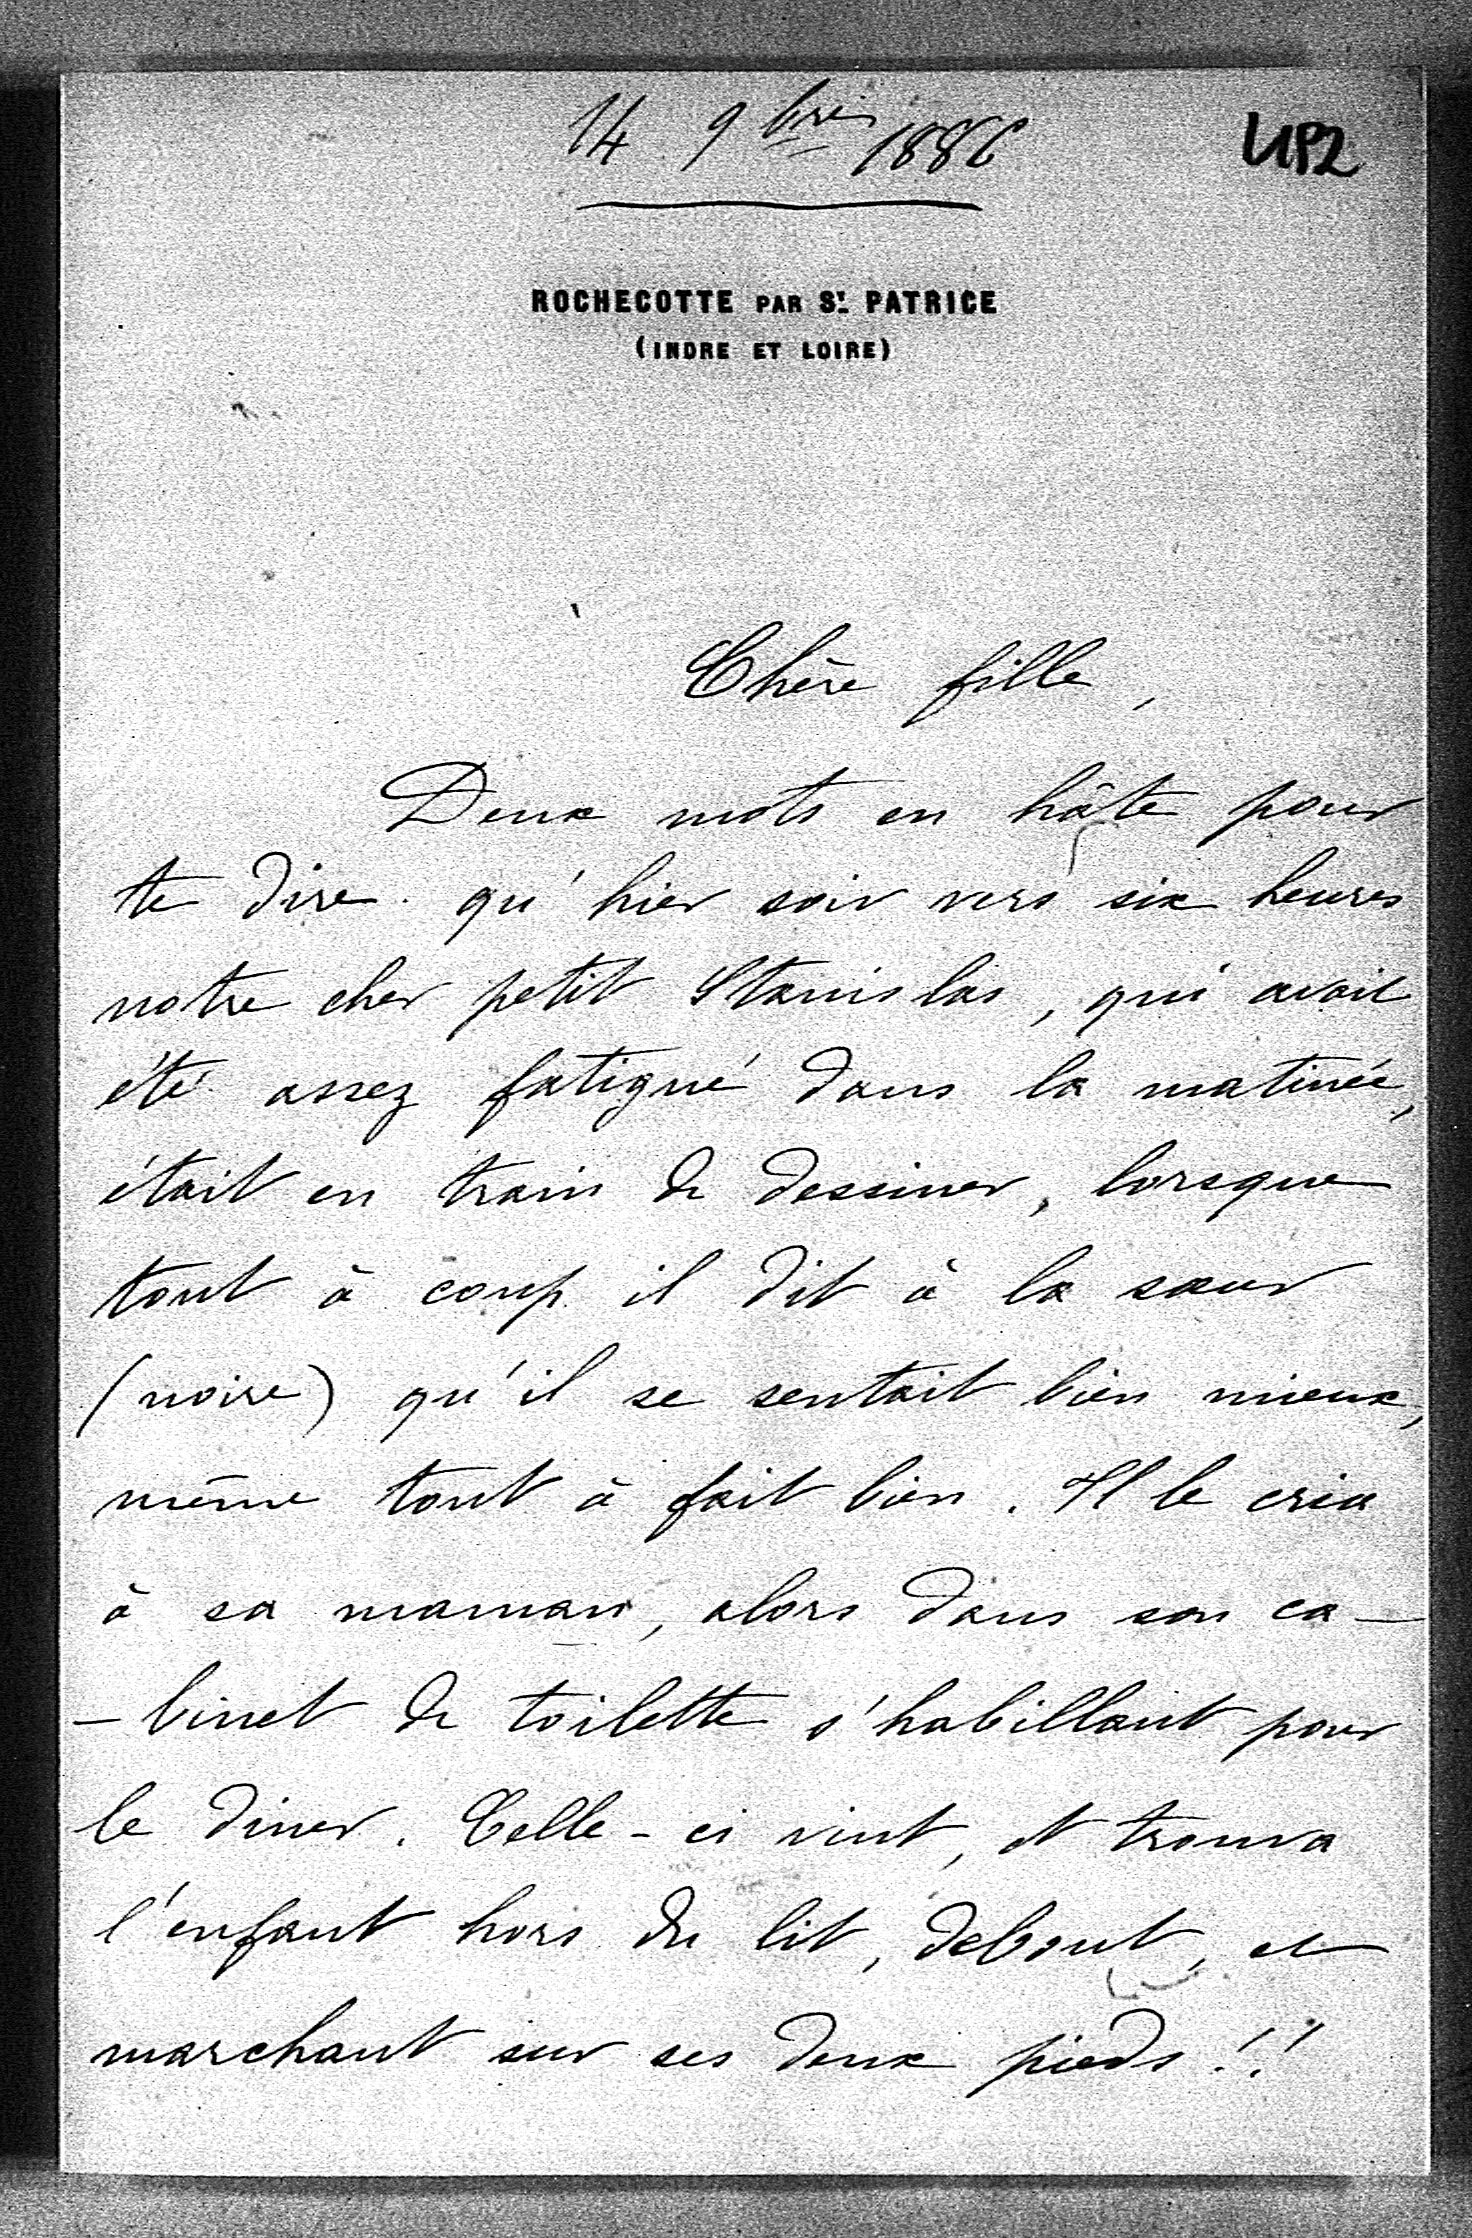 14 9bre 1886
UP2
ROCHECOTTE PAR St. PATRICE
(INDRE ET LOIRE)
Chère fille,
Deux mots en hâte pour
te dire qu'hier soir vers six heures
notre cher petit Stanislas, qui avait
été assez fatigué dans la matinée,
était en train de dessiner, lorsque
tout à coup il dit à la sœur
(noire) qu'il se sentait bien mieux,
même tout à fait bien. Il le cria
à sa maman, alors dans son ca-
-binet de toilette s'habillant pour
le diner. Celle-ci vint, et trouva
l'enfant hors du lit, debout, et
marchant sur ses deux pieds!!